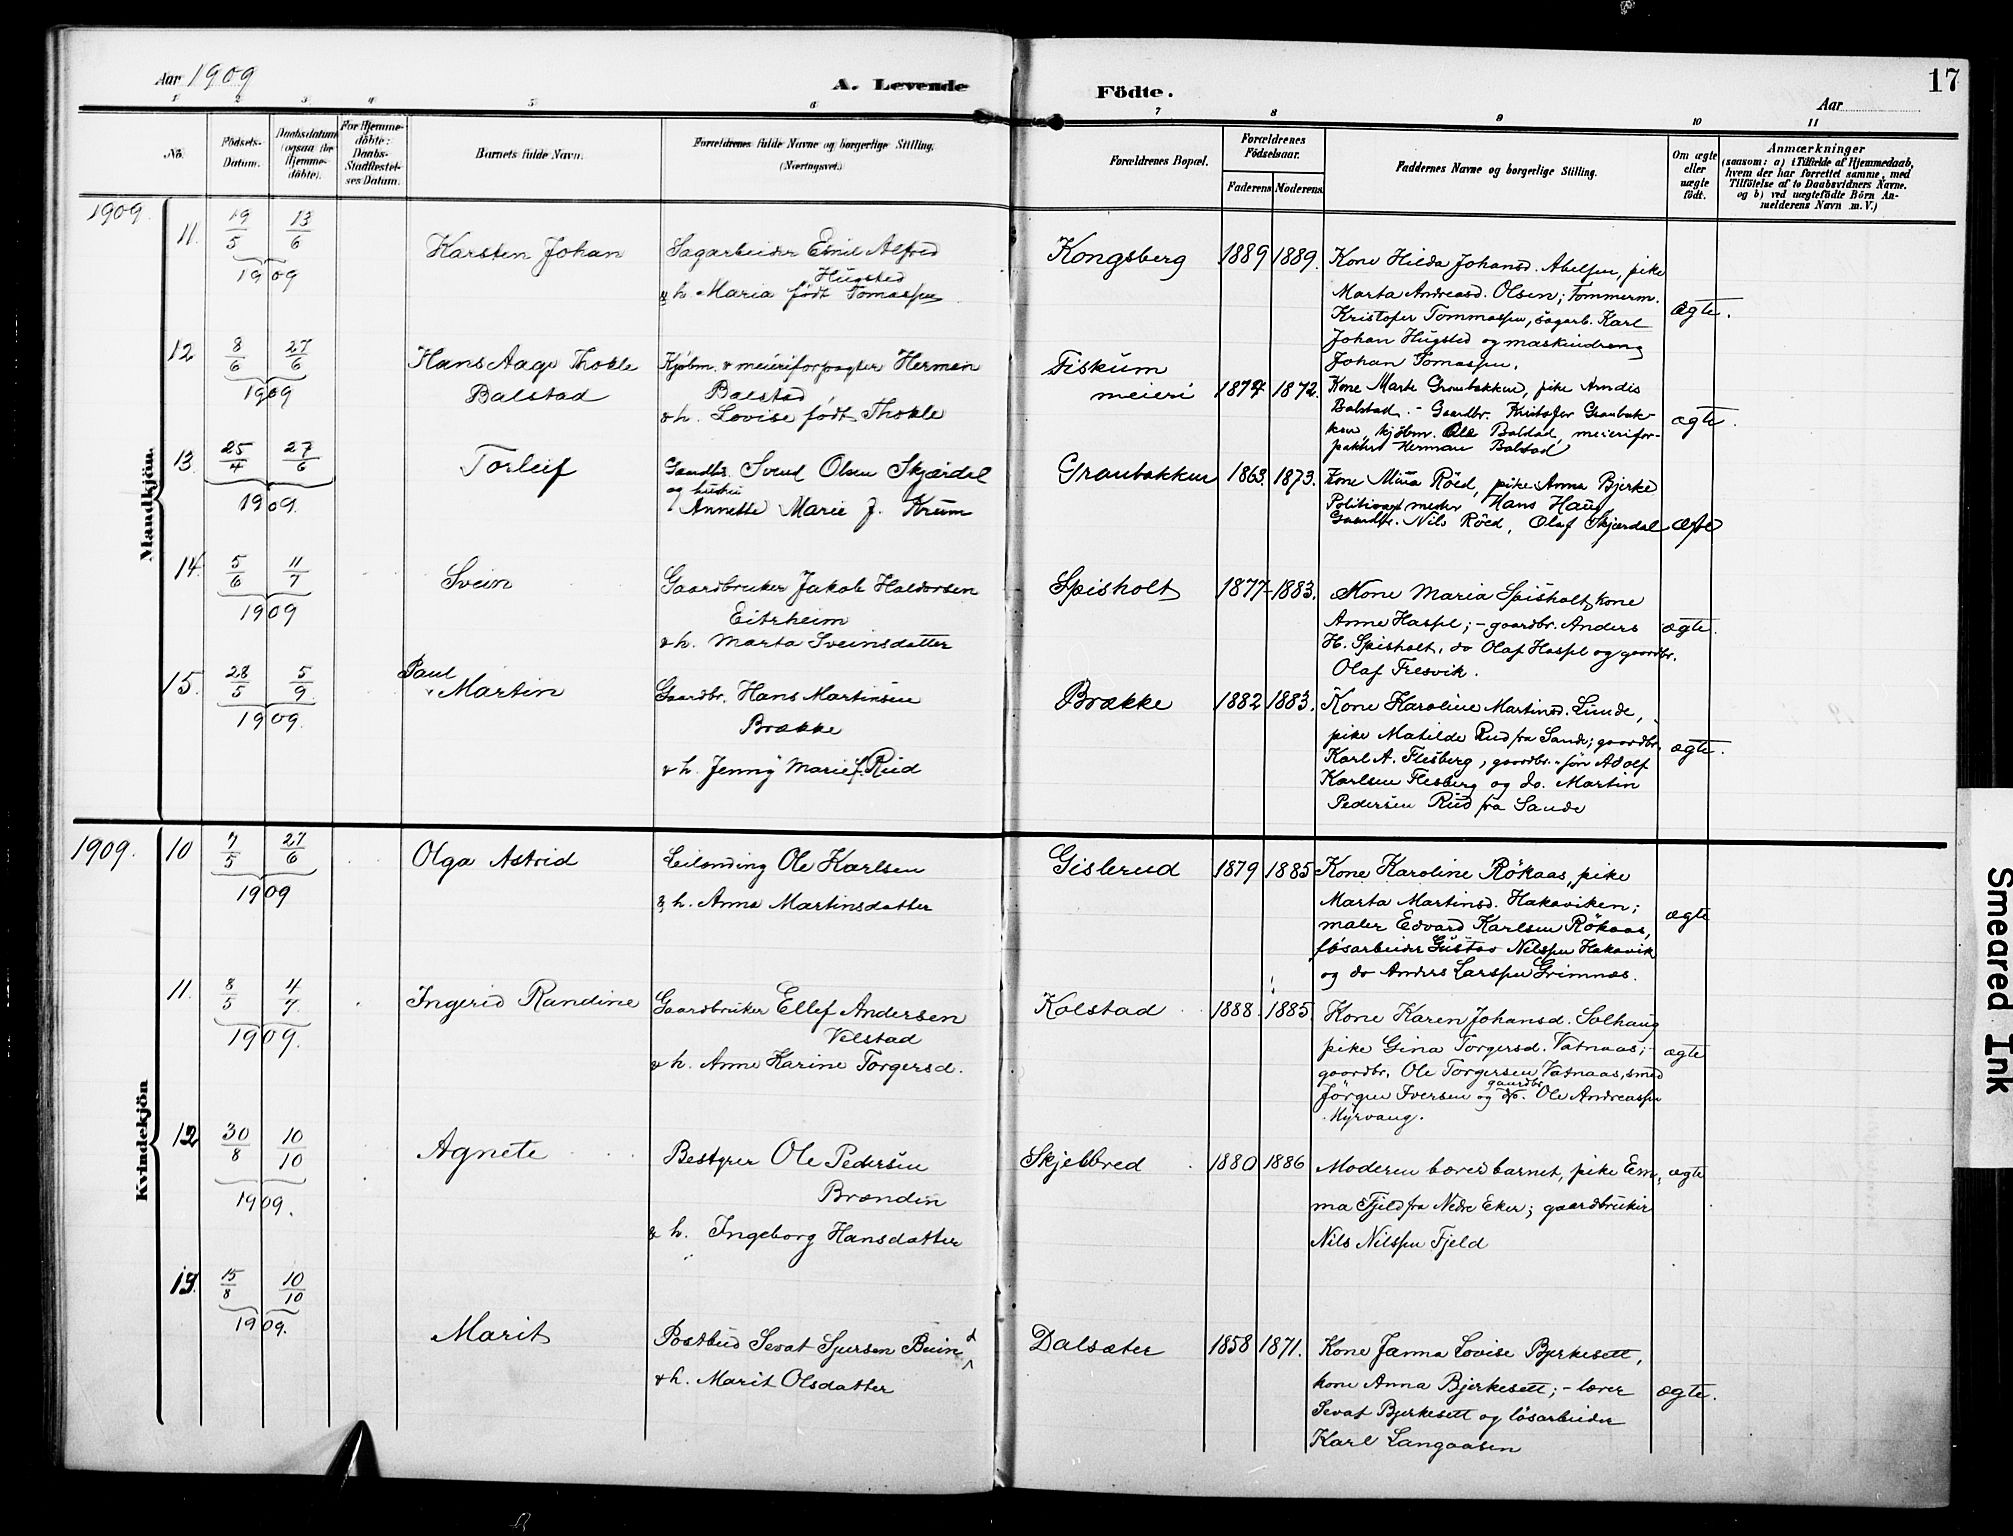 17
Aar 1909
A. Levende
Fødte.
Aar
1 2 3 4 5 6 7 8 9 10 11
No.
Fødsels-
Datum.
Daabsdatum
(ogsaa for
Hjemme-
døbte).
For Hjemme-
døbte:
Daabs-
Stadfæstel-
ses Datum.
Barnets fulde Navn.
Forældrenes fulde Navne og borgerlige Stilling.
(Næringsvei.)
Forældrenes Bopæl.
Forældrenes
Fødselsaar.
Faderens Moderens.
Faddernes Navne og borgerlige Stilling.
Om ægte
eller
uægte
født.
Anmærkninger
(saasom: a) i Tilfælde af Hjemmedaab,
hvem der har forrettet samme, med
Tilføielse af to Daabsvidners Navne.
og b) ved uægtefødte Børn An-
melderens Navn m. V.)
Mandkjøn.
1909.
11. 19/5 13/6
1909
Karsten Johan
Sagarbeider Emil Alfred
Hugsted
& h. Maria født Tomassen
Kongsberg 1889 1889.
Kone Hilda Johansd. Abelsen, pike
Marta Andreasd. Olsen; Tømmerm.
Kristofer Tommassen, sagarb. Karl
Johan Hugsted og maskindreng
Johan Tomassen.
ægte.
12 8/6 27/6
1909
Hans Aage Thokle
Balstad
Kjøbm. & meieriforpagter Herman
Balstad
& h. Lovise født Thokle
Fiskum
meieri 1874 1872.
Kone Marte Granbakken, pike Arndis
Balstad. - Gaardbr. Kristofer Granbak-
ken, kjøbm. Ole Balstad, meierifor-
pakter Herman Balstad
ægte.
13. 25/4 27/6
1909.
Torleif
Gaardbr. Svend Olsen Skjærdal
og hustru
Annette Marie J. Krum
Granbakken 1863. 1873.
Kone Mina Röed, pike Anna Bjerke
Hans Haug
Gaardbr. Nils Röed, Olaf Skjærdal
ægte
14. 5/6 11/7
1909
Svein
Gaardbruker Jakob Haldorsen
Eitrheim
& h. Marta Sveinsdatter
Spisholt 1877 1883.
Kone Maria Spisholt, kone
Anne Haspl; - gaardbr. Anders
H. Spisholt, do Olaf Haspl og gaardbr.
Olaf Tresvik.
ægte.
15. 28/5 5/9
1909.
Paul
Martin
Gaardbr. Hans Martinsen
Brække
& h. Jenny Marie f. Rud
Brække 1882 1883.
Kone Karoline Martinsd. Lunde,
pike Matilde Rud fra Sande; gaardbr.
Karl A. Flesberg, gaardbr.-søn Adolf
Karlsen Flesberg og do. Martin
Pedersen Rud fra Sande
ægte.
Kvindekjøn
1909.
10 7/5 27/6
1909
Olga Astrid
Leilending Ole Karlsen
& h. Anna Martinsdatter
Gislerud 1879 1885
Kone Karoline Rökaas, pike
Marta Martinsd. Hakaviken;
maler Edvard Karlsen Rökaas,
løsarbeider Gustav Nilssen Hakavik
og do Anders Larssen Grimnes.
ægte
11. 8/5 4/7
1909.
Ingerid Randine
Gaardbruker Ellef Andersen
Velstad
& h. Anne Karine Torgersd.
Kolstad 1888. 1885.
Kone Karen Johansd. Solhaug
pike Gina Torgersd. Vatnaas; -
gaardbr. Ole Torgersen Vatnaas, smed
Jörgen Iversen og gaardbr. Ole Andreassen
Myrvang.
ægte
12 30/8 10/10
1909.
Agnete
Bestyrer Ole Pedersen
Brænden
& h. Ingeborg Hansdatter
Skjelbred 1880 1886
Moderen bærer barnet, pike Em-
ma Fjeld fra Nedre Eker; gaardbruker
Nils Nilssen Fjeld
ægte
13. 15/8 10/10
1909.
Marit
Postbud Sevat Sjursen Buind
& h. Marit Olsdatter
Dalsæter 1858 1871.
Kone Janna Lovise Bjerkesett,
kone Anna Bjerkesett; - lærer
Sevat Bjerkesett og løsarbeider
Karl Langaasen
ægte.
Smeared Ink